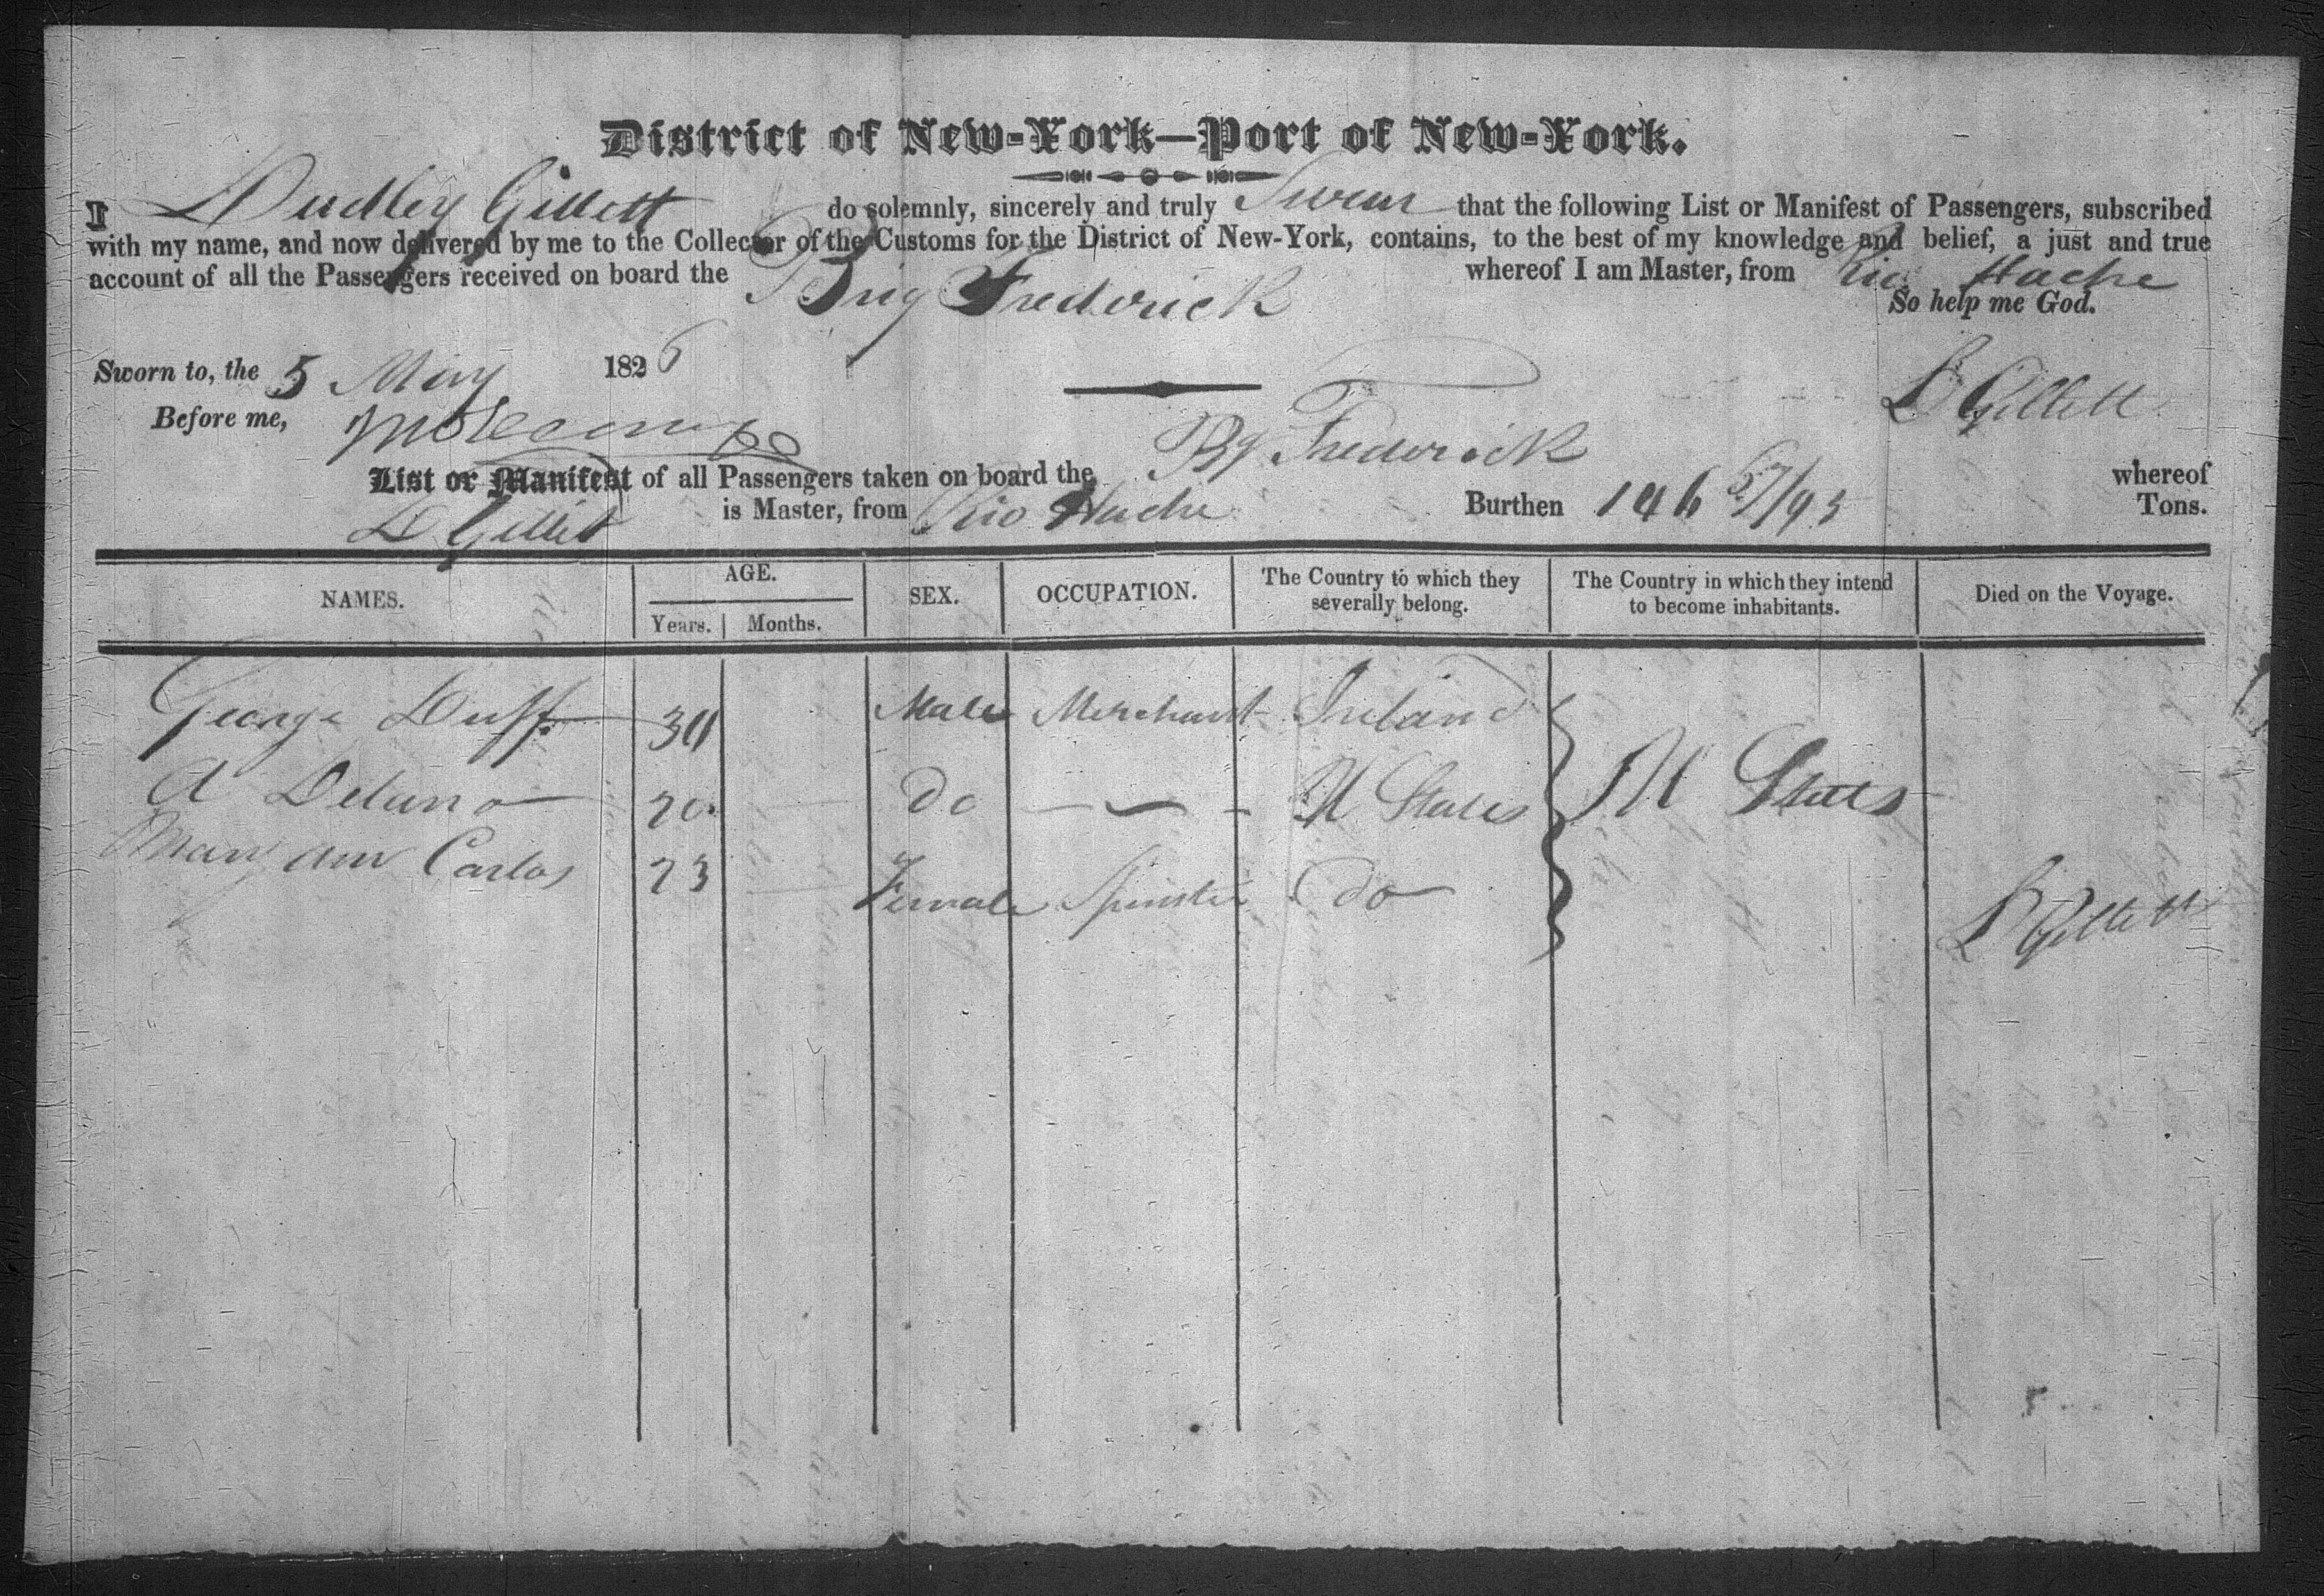 District of New-York—Port of New-York.
I Dudley Gillett do solemnly, sincerely and truly Swear that the following List or Manifest of Passengers, subscribed
with my name, and now delivered by me to the Collector of the Customs for the District of New-York, contains, to the best of my knowledge and belief, a just and true
account of all the Passengers received on board the Brig Frederick whereof I am Master, from Rio Hache
So help me God.
Sworn to, the 5 May 1826
D Gillett
Before me,
List or Manifest of all Passengers taken on board the Bg Frederick whereof
D Gillett is Master, from Rio Hache Burthen 146 67/95 Tons.
NAMES. AGE. Years. Months. SEX. OCCUPATION. The Country to which they severally belong. The Country in which they intend to become inhabitants. Died on the Voyage.
George Duff 30 Male Merchant Ireland
A Delano 20 do — U States U States
Mary Ann Carlos 23 Female Spinster do
D Gillett